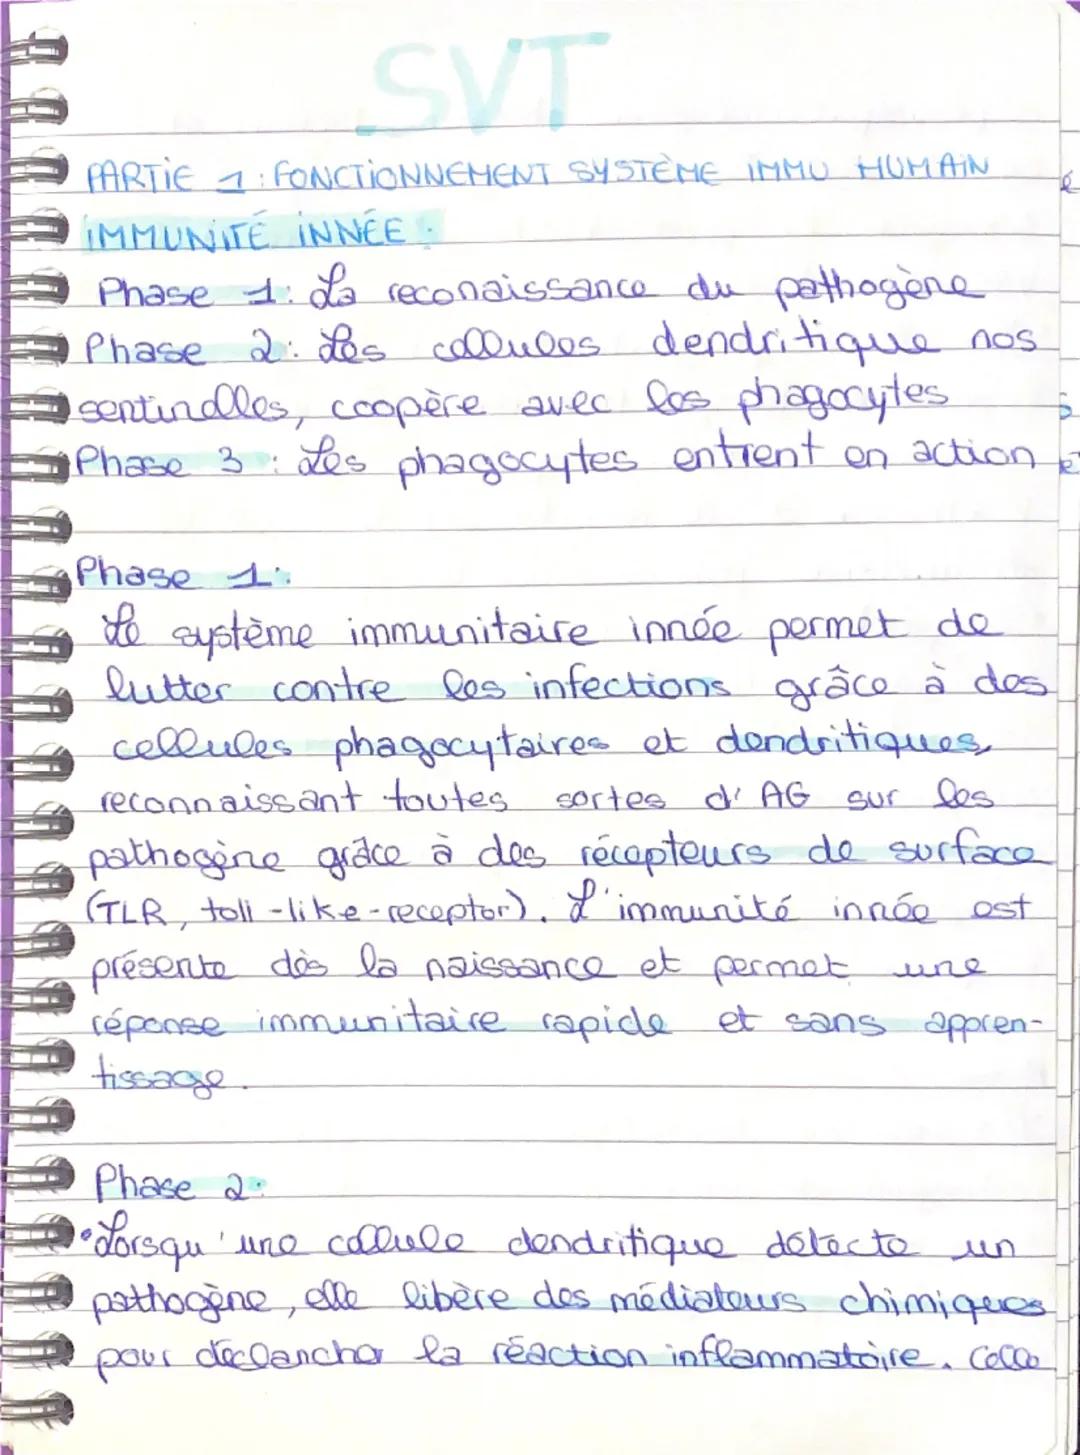 SVT
PARTIE 1 : FONCTIONNEMENT SYSTÈME IMMU HUMAIN
IMMUNITÉ INNÉE :
Phase 1 : La reconaissance du pathogène
Phase 2 : Les cellules dendritique nos
sentinelles, coopère avec les phagocytes
Phase 3 : Les phagocytes entrent en action
Phase 1 :
Le système immunitaire innée permet de
lutter contre les infections grâce à des
cellules phagocytaires et dendritiques,
reconnaissant toutes sortes d'AG sur les
pathogène grâce à des récepteurs de surface
(TLR, toll-like-receptor). L'immunité innée est
présente dès la naissance et permet une
réponse immunitaire rapide et sans appren-
tissage.
Phase 2 :
• Lorsqu'une cellule dendritique détecte un
pathogène, elle libère des médiateurs chimiques
pour déclancher la réaction inflammatoire. Celle